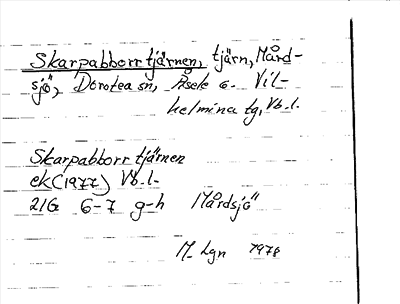 Skarpabborrtjärnen, tjärn, Mård-
sjö, Dorotea sn, Åsele o. Vil-
helmina tg, Vb.l.
Skarpabborrtjärnen
ek (1977) Vb.l-
21G 6-7 g-h Mårdsjö
M. Lgn 1978